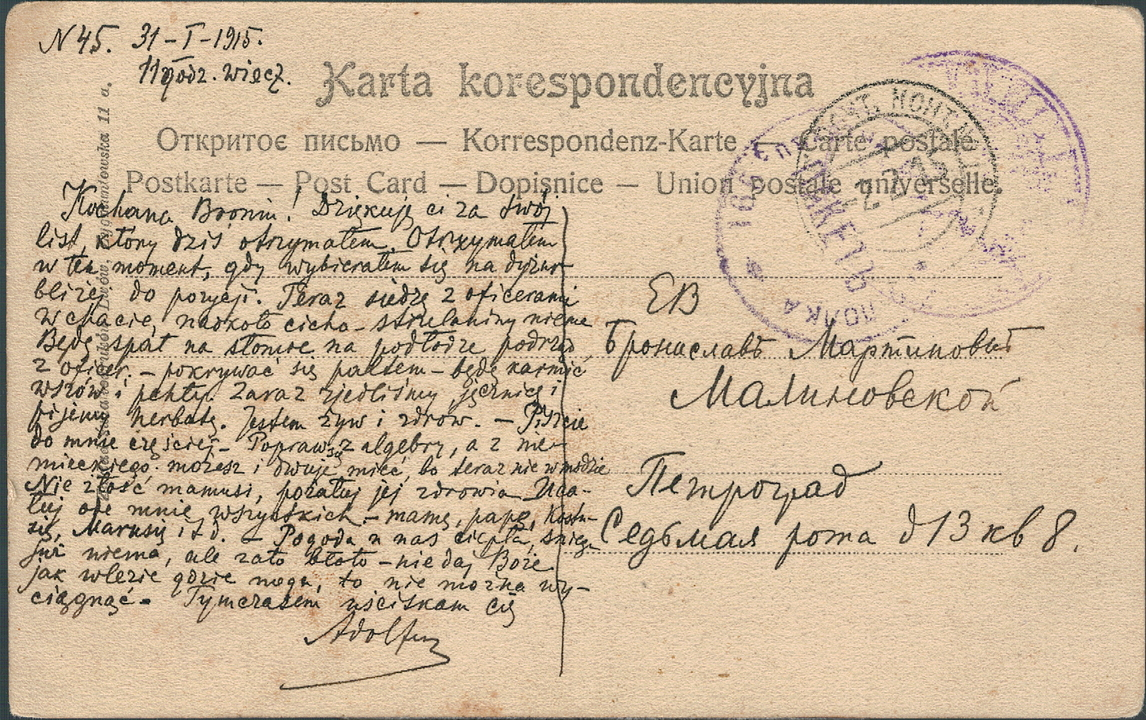 N 45. 31-I-1915.
11 godz. wiecz.
Karta korespondencyjna
Открытое письмо — Korrespondenz-Karte — Carte postale
Postkarte — Post Card — Dopisnice — Union postale universelle.
Kochana Broniu! Dziękuję ci za twój
list, który dziś otrzymałem. Otrzymałem
w ten moment, gdy wybierałem się na dyżur
bliżej do pozycji. Teraz siedzę z oficerami
w chacie, naokoło cicho - strzelaniny niema
Będę spał na słomie na podłodze podrząd
z oficer. - pokrywać się paltem - będę karmić
wszów i pchły. Zaraz zjedliśmy jęcznicę i
pijemy herbatę. Jestem żyw i zdrów. - Piszcie
do mnie częściej - Popraw się z algebry, a z nie-
mieckiego możesz i dwuję mieć, bo teraz nie w modzie
Nie złość mamusi, pożałuj jej zdrowia Uca-
łuj ode mnie wszystkich - mamę, papę, Kostu-
się, Marusię i t.d. - Pogoda u nas ciepła, śniegu
już niema, ale zato błoto - nie daj Boże
jak wlezie gdzie noga, to nie można wy-
ciągnąć - Tymczasem uściskam cię
Adolf
ЕВ
Брониславѣ Мартиновнѣ
Малиновской
Петроград
Седьмая рота д 13 кв 8.
ПОЛКА
2 2 15